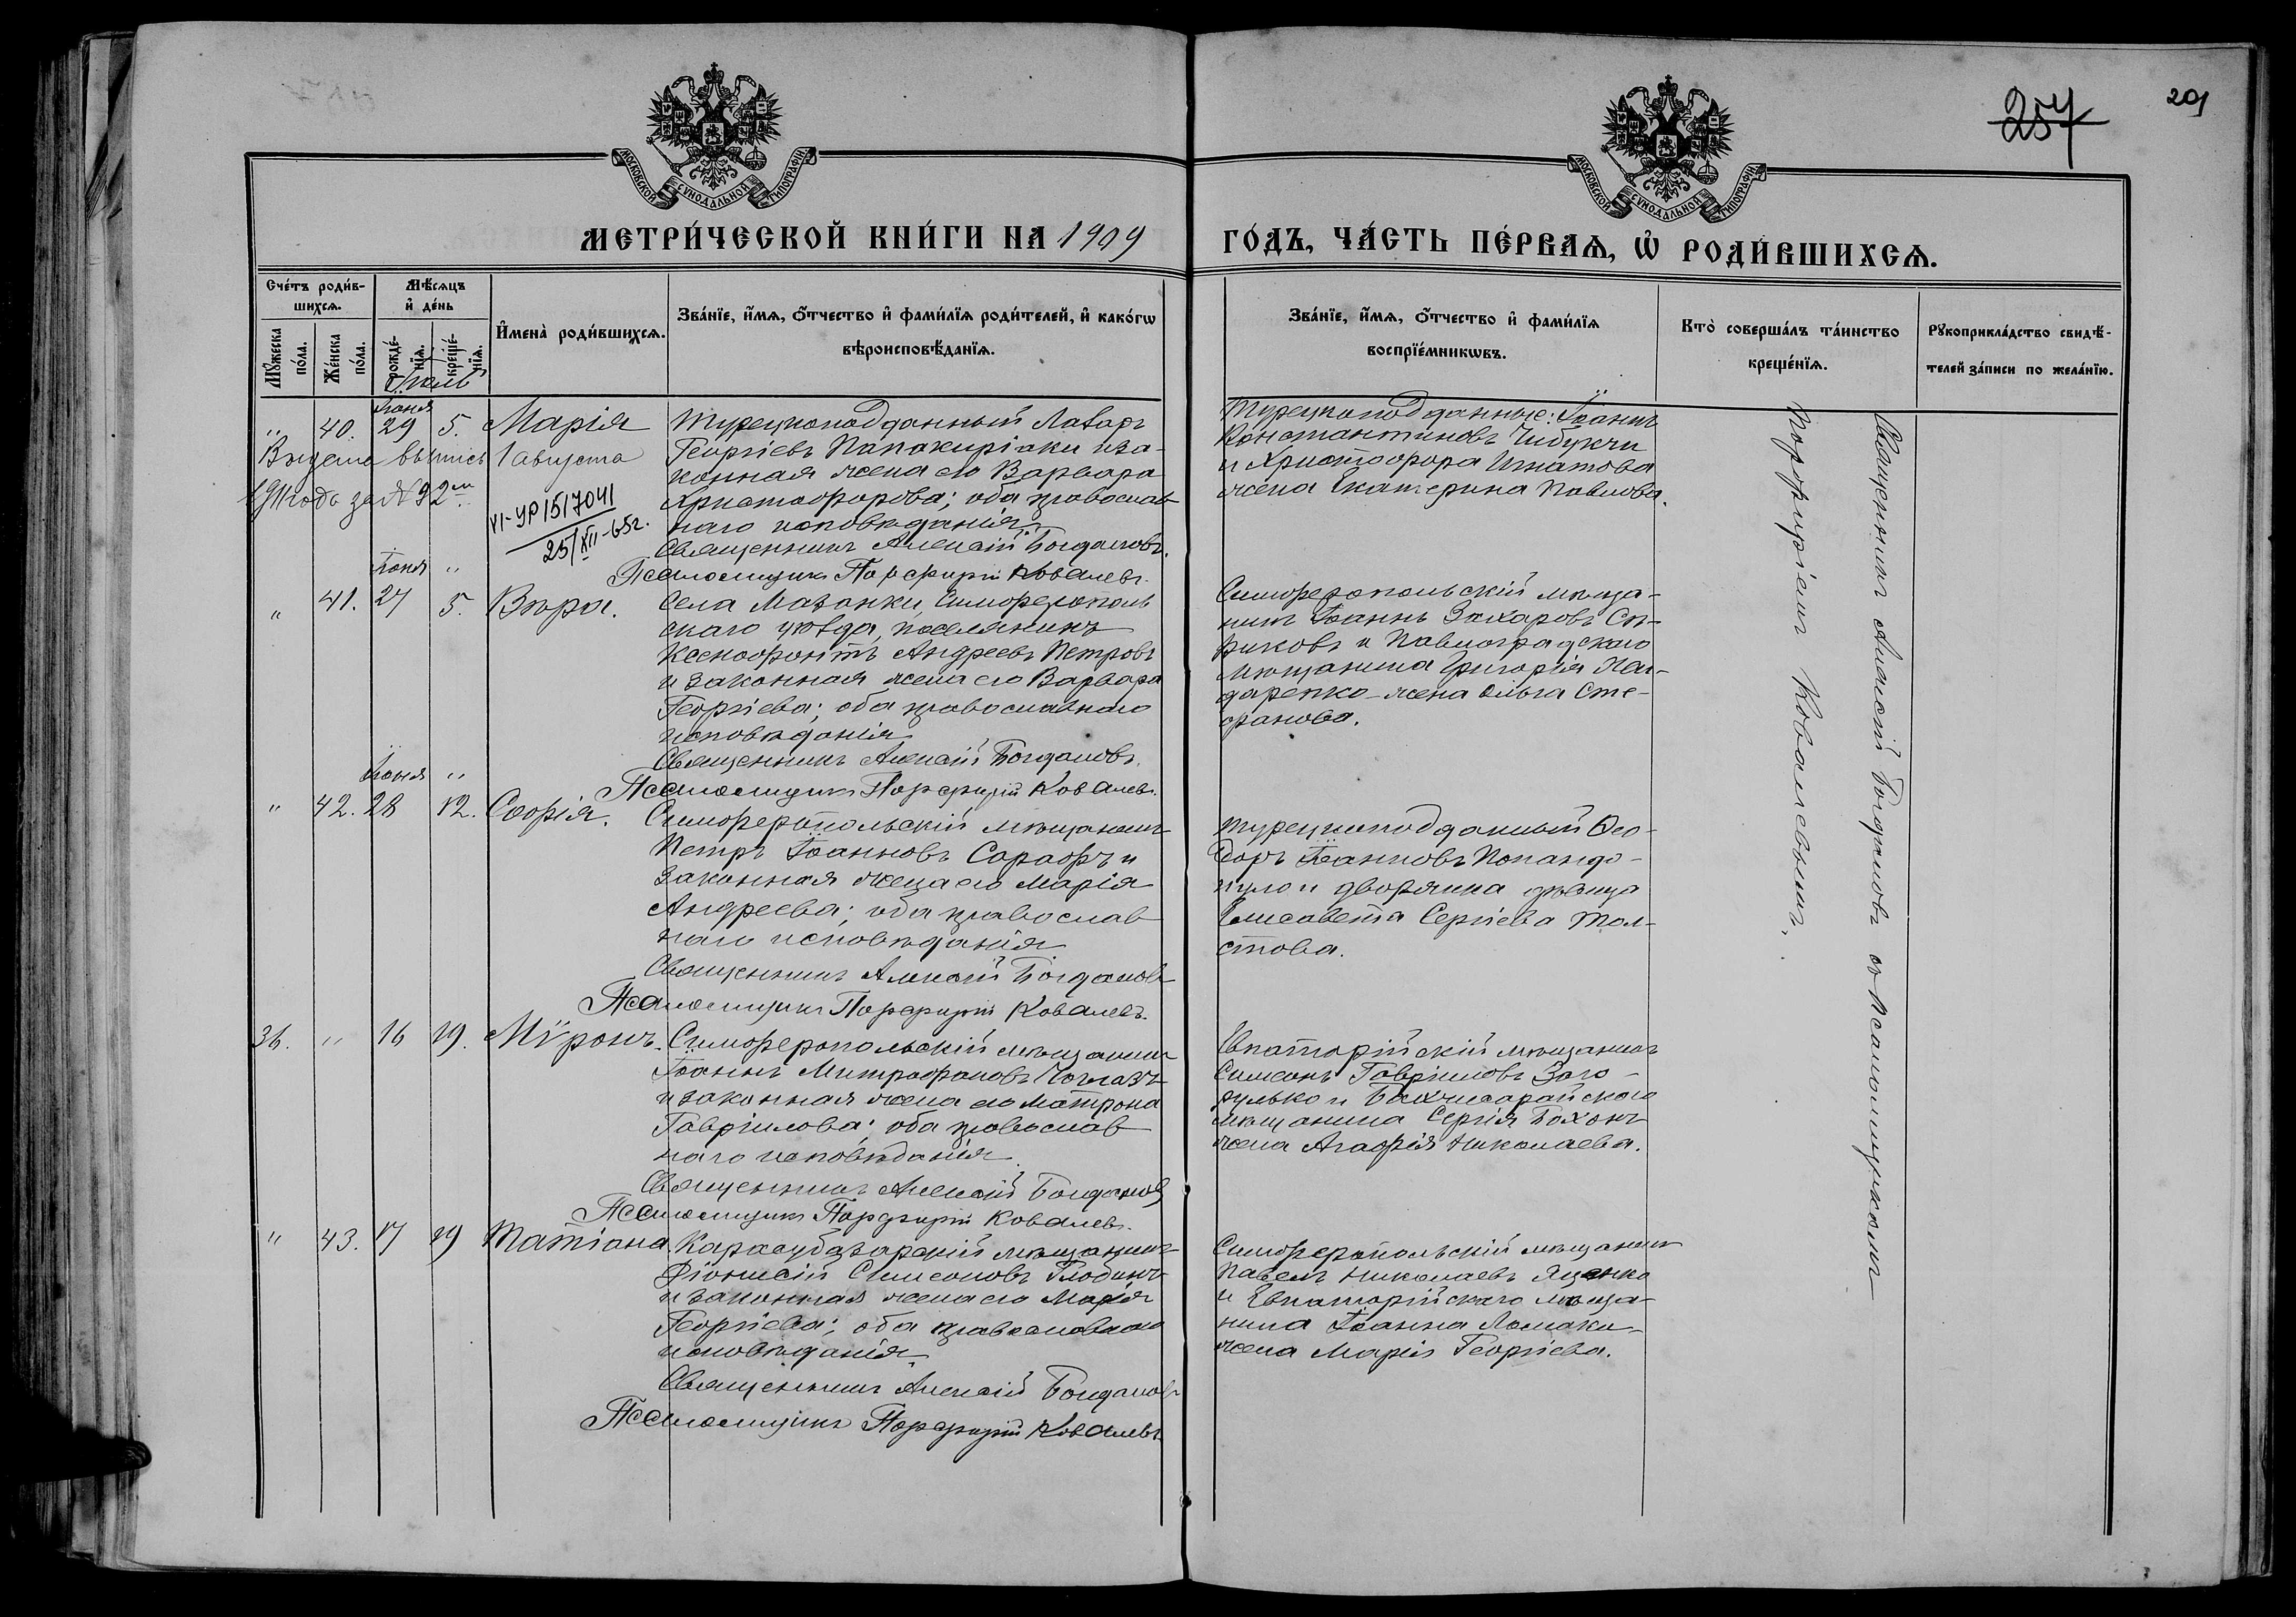 257
201
МОСКОВСКОЙ СѴНОДАЛЬНОЙ ТИПОГРАФІИ
МОСКОВСКОЙ СѴНОДАЛЬНОЙ ТИПОГРАФІИ
МЕТРИ́ЧЕСКОЙ КНИ́ГИ НА 1909
ГО́ДЪ, ЧА́СТЬ ПЕ́РВАѦ, Ѡ҆ РОДИ́ВШИХСѦ.
Сче́тъ роди́в-
шихсѧ.
Мꙋ́жеска по́ла.
Же́нска по́ла.
Мѣ́сѧцъ и҆ де́нь
рожде́-нїѧ.
креще́-нїѧ.
И҆мена̀ роди́вшихсѧ.
Зва́нїе, и҆́мѧ, ѻ҆́тчество и҆ фами́лїѧ роди́телей, и҆ како́гѡ
вѣроисповѣ́данїѧ.
Зва́нїе, и҆́мѧ, ѻ҆́тчество и҆ фами́лїѧ
воспрїе́мникѡвъ.
Кто̀ соверша́лъ та́инство
креще́нїѧ.
Рꙋкоприкла́дство свидѣ́-
телей за́писи по жела́нїю.
Іюль
Іюня
" 40. 29 5. Марія
Турецкоподданный Лазарь
Георгіевъ Папакиріаки и за-
конная жена его Варвара
Христофорова; оба православ
наго исповѣданія
Священникъ Алексій Богдановъ.
Псаломщикъ Порфирій Ковалевъ.
Выдана выпись 1 августа
1911 года за № 92м
VI-УР 1517041
25/XII-65г.
Турецкоподданные: Іоаннъ
Константиновъ Чибукчи
и Христофора Игнатова
жена Екатерина Павлова.
Іюня "
" 41. 27 5. Вѣра.
Села Мазанки, Симферополь
скаго уѣзда, поселянинъ
Ксенофонтъ Андреевъ Петровъ
и законная жена его Варвара
Георгіева; оба православнаго
исповѣданія
Священникъ Алексій Богдановъ.
Псаломщикъ Порфирій Ковалевъ.
Симферопольскій мѣща-
нинъ Іоаннъ Захаровъ Сп-
риковъ и Павлоградскаго
мѣщанина Григорія
жена Ольга Сте-
фанова.
Іюня "
" 42. 28 12. Софія.
Симферопольскій мѣщанинъ
Петръ Іоанновъ Сарафъ и
законная жена его Марія
Андреева; оба православ
наго исповѣданія
Священникъ Алексій Богдановъ
Псаломщикъ Порфирій Ковалевъ.
Турецкоподданный Ѳео-
доръ Іоанновъ Попандо-
пуло и дворянка дѣвица
Елисавета Сергіева Тол-
стова.
36. " 16 19. Мѵронъ.
Симферопольскій мѣщанинъ
Іоаннъ Митрофановъ
и законная жена его Матрона
Гавріилова; оба православ
наго исповѣданія.
Священникъ Алексій Богдановъ
Псаломщикъ Порфирій Ковалевъ.
Евпаторійскій мѣщанинъ
Симеонъ Гавріиловъ Заго-
рулько и Бахчисарайскаго
мѣщанина Сергія Бохонъ
жена Агафія Николаева.
" 43. 17 19 Татіана.
Карасубазарскій мѣщанинъ
Діонисій Симеоновъ Глобинъ
и законная жена его Марія
Георгіева; оба православнаго
исповѣданія.
Священникъ Алексій Богдановъ
Псаломщикъ Порфирій Ковалевъ.
Симферопольскій мѣщанинъ
Павелъ Николаевъ Яценко
и Евпаторійскаго мѣща-
нина Іоанна Ломаки-
жена Марія Георгіева.
Священникъ Алексій Богдановъ съ Псаломщикомъ
Порфиріемъ Ковалевымъ.